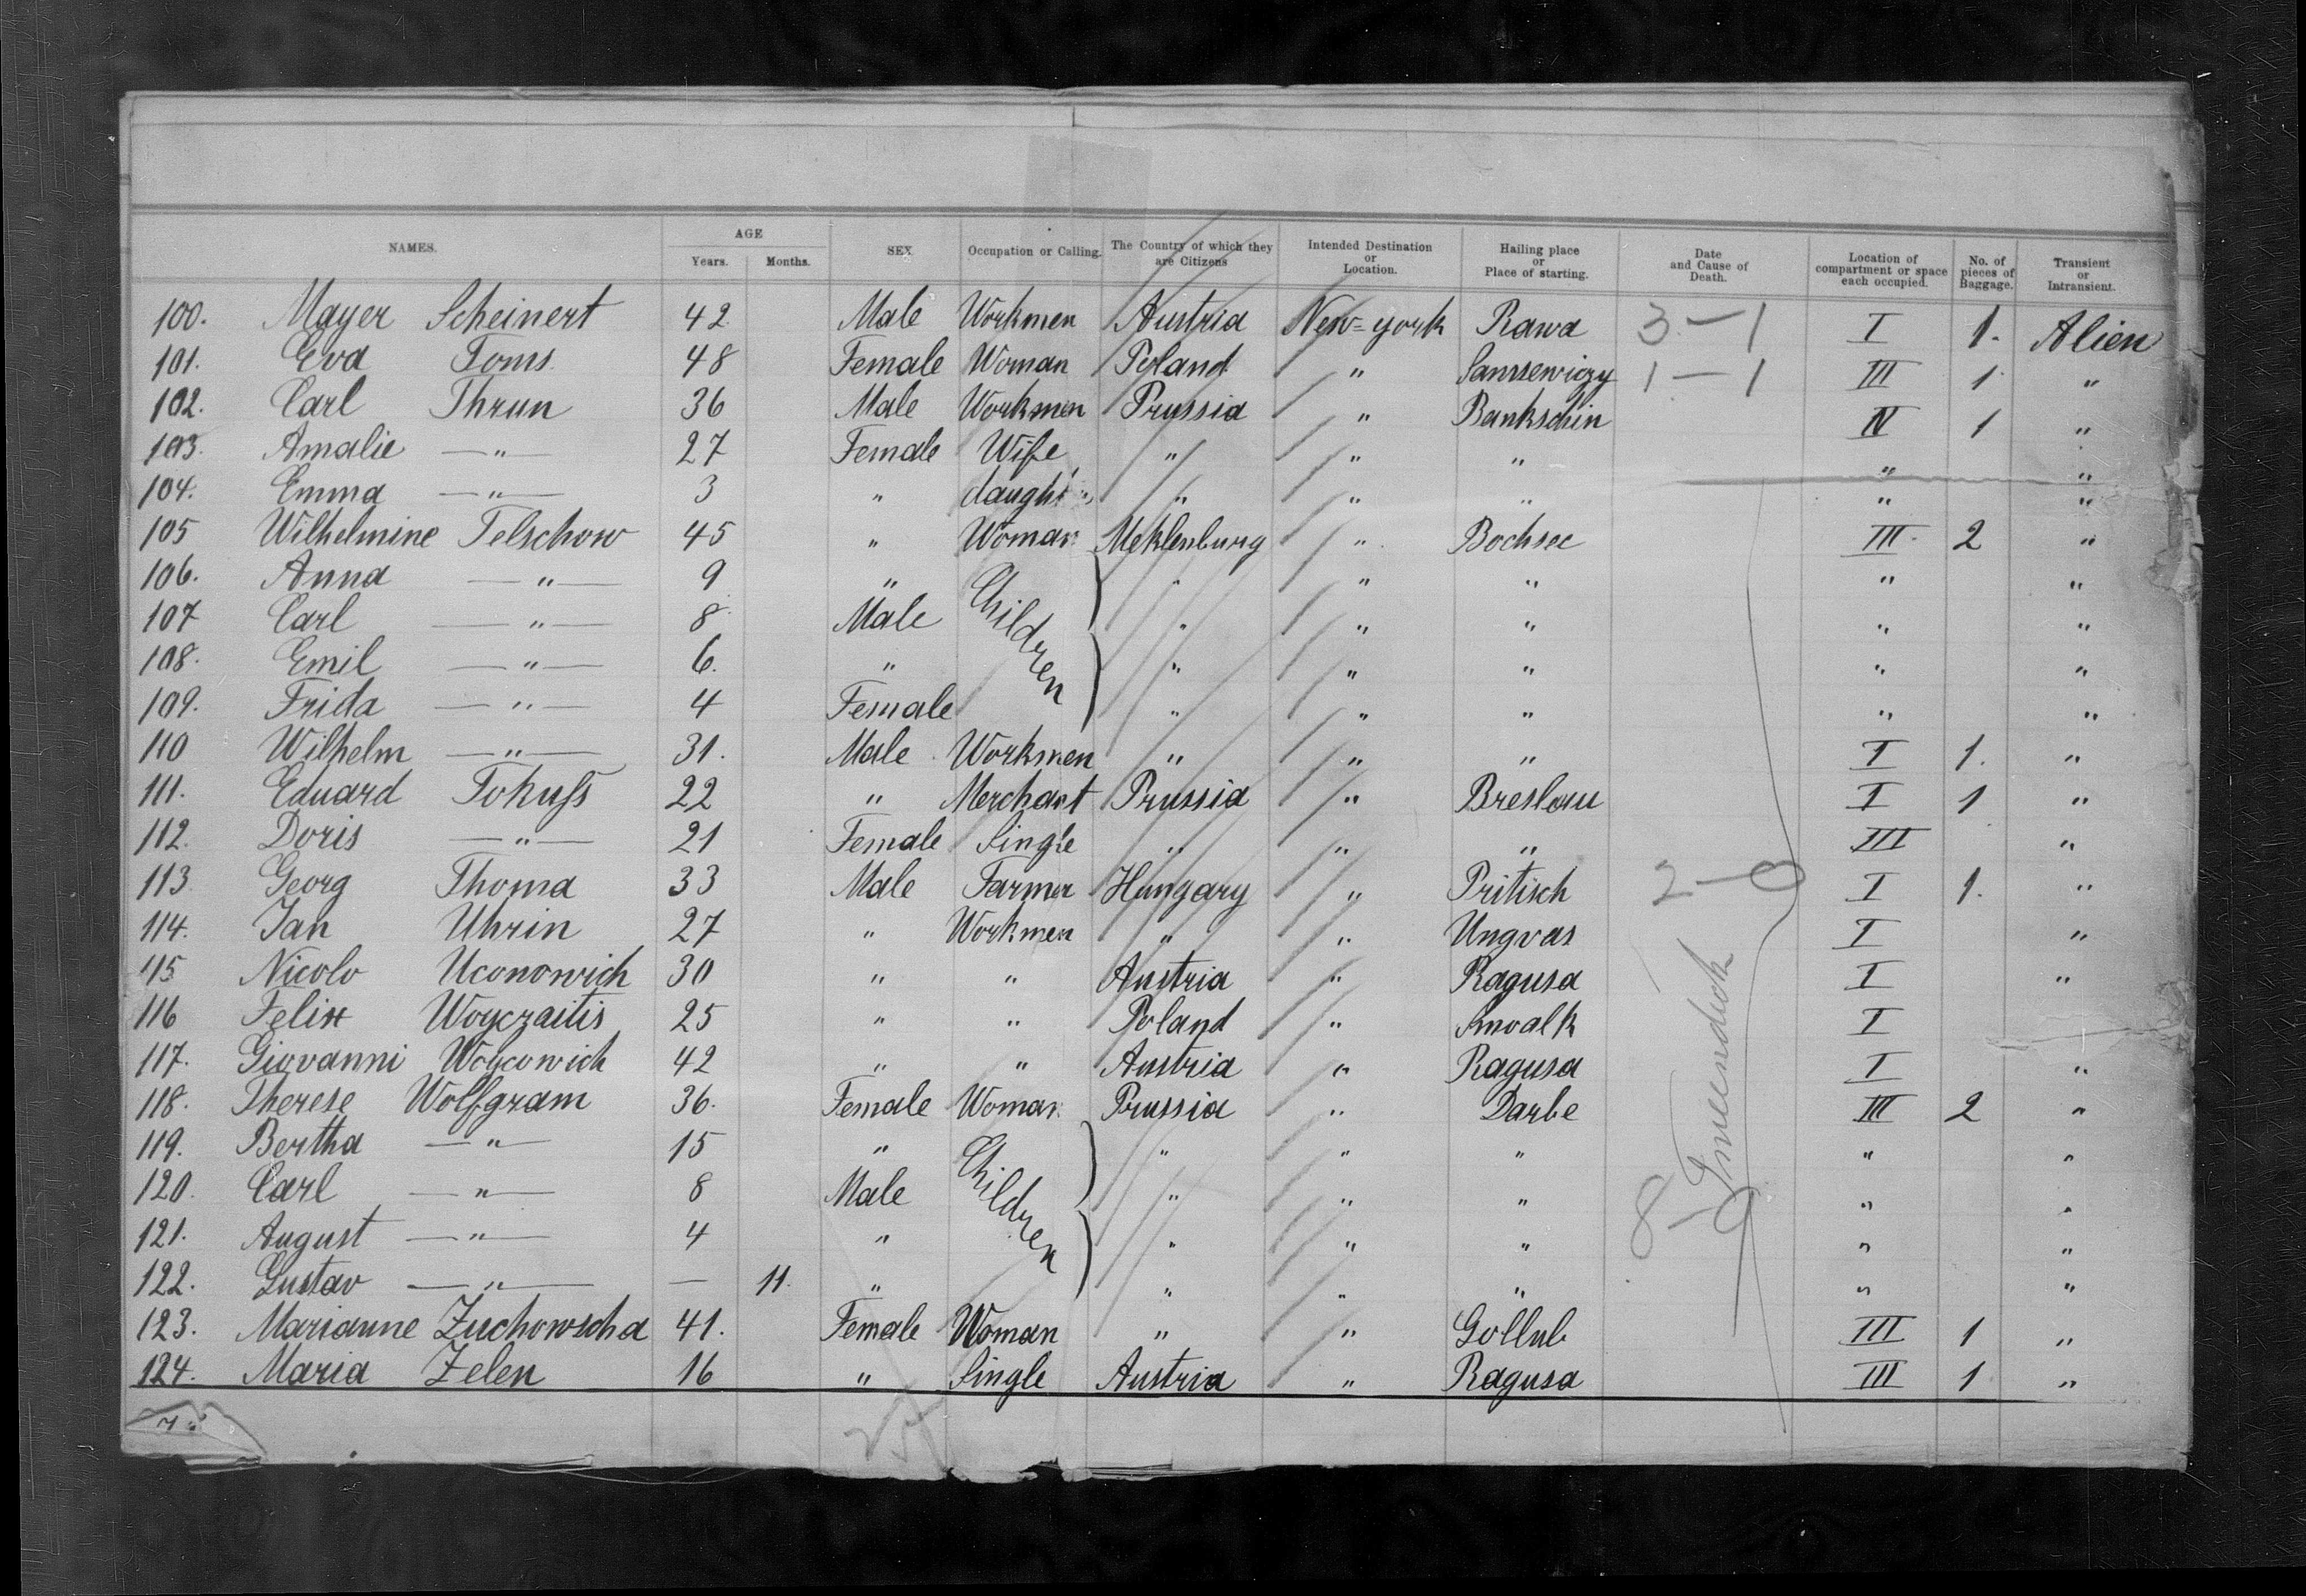 NAMES. AGE Years. Months. SEX Occupation or Calling. The Country of which they are Citizens Intended Destination or Location. Hailing place or Place of starting. Date and Cause of Death. Location of compartment or space each occupied. No. of pieces of Baggage. Transient or Intransient.
100. Mayer Scheinert 42 Male Workmen Austria New=york Rawa 3-1 I 1. Alien
101. Eva Toms 48 Female Woman Poland " 1-1 III 1 "
102. Carl Thrun 36 Male Workmen Prussia " Bankschin IV 1 "
103. Amalie —"— 27 Female Wife " " " " "
104. Emma —"— 3 " daught " " " " "
105 Wilhelmine Telschow 45 " Woman Meklenburg " Bochsee III. 2 "
106. Anna —"— 9 " Children " " " " "
107 Carl —"— 8 Male " " " " "
108. Emil —"— 6. " " " " " "
109. Frida —"— 4 Female " " " " "
110 Wilhelm —"— 31. Male Workmen " " " I 1. "
111. Eduard Tokuß 22 " Merchant Prussia " Breslau I 1 "
112. Doris —"— 21 Female Single " " " III "
113 Georg Thoma 33 Male Farmer Hungary " Pritisch 2-0 I 1. "
114. Jan Uhrin 27 " Workmen " " Ungvar I "
115 Nicolo Uconowich 30 " " Austria " Ragusa I "
116 Felix Woyczaitis 25 " " Poland " I
117. Giovanni Woycowich 42 " " Austria " Ragusa I "
118. Therese Wolfgram 36. Female Woman Prussia " Darbe III 2 "
119. Bertha —"— 15 " Children " " " " "
120. Carl —"— 8 Male " " " " "
121. August —"— 4 " " " " 8- " "
122. Gustav —"— — 11. " " " " " "
123. Marianne Zuchowscha 41. Female Woman " " Gollub III 1 "
124. Maria Zelen 16 " Single Austria " Ragusa III 1 "